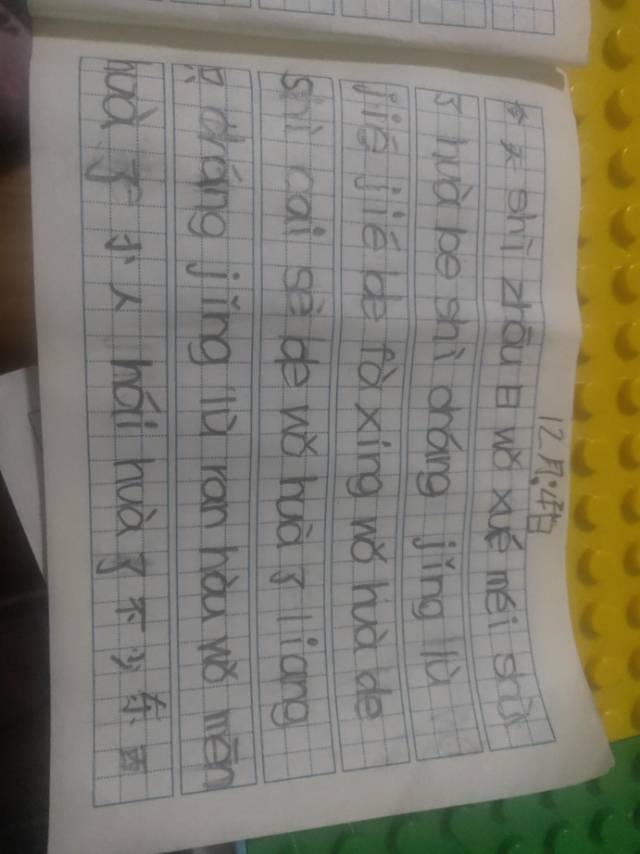 12月4日
今天 shì zhōu 日 wǒ xué měi shù
了 huà be shì cháng jǐng lù
jiě jiě de fà xíng wǒ huà de
shì cǎi sè de wǒ huà 了 liang
只 cháng jǐng lù ran hàu wǒ mēn
huà 了 小人 hái huà 了 不少东西